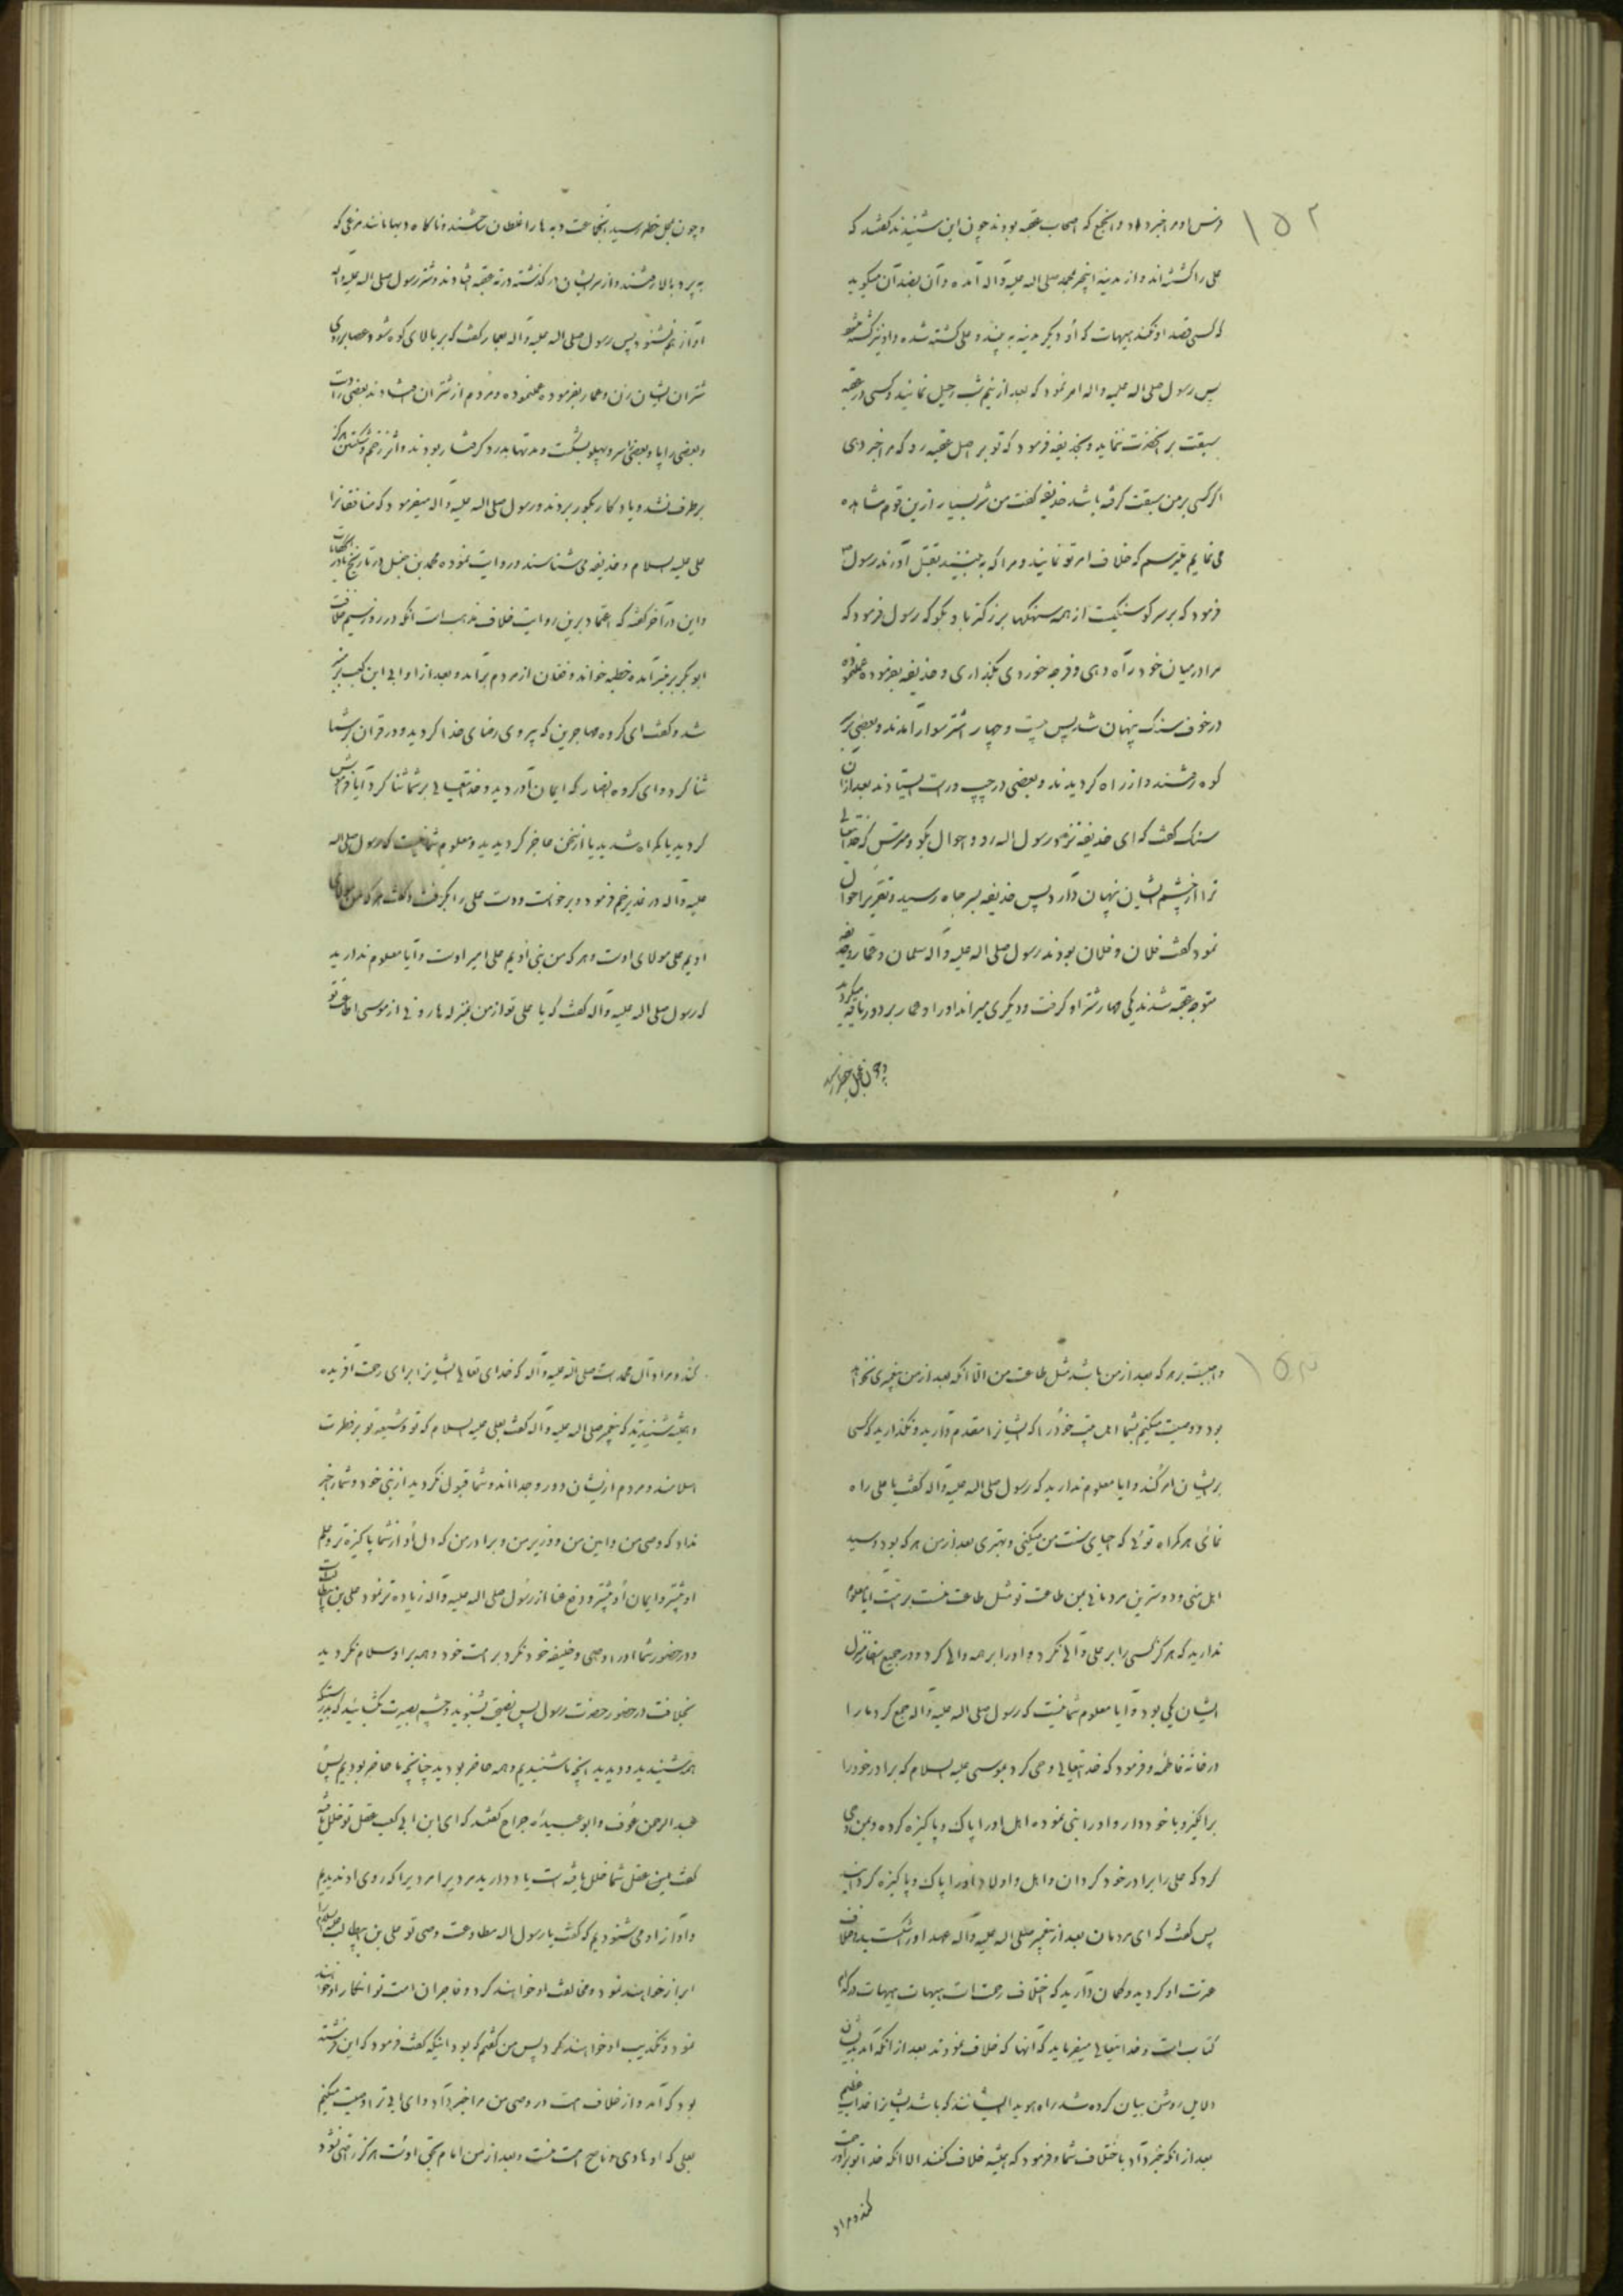 ۱۵۲
فرس او مرا خبر داد و آنجمع که اصحاب عقبه بودند چون این شنیدند گفتند که
علی را کشته‌اند و از مدینه این خبر بمحمد صلی اله علیه و آله آمده و آن بضد آن میگوید
که کسی قصد او نکند هیهات که او دیگر مدینه به بیند و علی کشته شده و او نیز کشته شود
پس رسول صلی اله علیه واله امر نمود که بعد از نیم شب رحیل نمایند و کسی در عقبه
سبقت بر آنحضرت ننماید و بحذیفه فرمود که تو بر اصل عقبه رو که مرا خبر دهی
اگر کسی بر من سبقت گرفته باشد حذیفه گفت من شر بسیار ازین قوم مشاهده
می نمایم میترسم که خلاف امر تو نمایند و مرا که به بینند بقتل آورند رسول ص
فرمود که بر سر کوه سنگیست از همه سنگها بزرگتر با او بگو که رسول فرمود که
مرا در میان خود راه دهی و فرجه خوردی بگذاری و حذیفه بفرموده عمل نموده
در جوف سنگ پنهان شد پس بیست و چهار شتر سوار آمدند و بعضی بر سر
کوه رفتند و از راه گردیدند و بعضی در چپ و راست ایستادند بعد از آن
سنگ گفت که ای حذیفه نزد رسول اله رو و احوال بگو و مترس که خدایتعالی
ترا از چشم ایشان پنهان دارد پس حذیفه بسر جاه رسید و تقریر احوال
نمود گفت فلان و فلان بودند رسول صلی اله علیه و آله سلمان و عمار و حذیفه
متوجه عقبه شدند یکی مهار شتر او گرفت و دیگری میراند او را و عمار بر دور ناقه میگردید
و چون بمحل خطر رسید
و چون بمحل خطر رسید آنجماعت دبه ها را غلطان ساختند و ناگاه دبها مانند مرغی که
به پرد بالا رفتند و از سر ایشان در گذشته در ته عقبه افتادند و شتر رسول صلی اله علیه و آله
آواز هم نشنود پس رسول صلی اله علیه و آله بعمار گفت که بر بالای کوه شو و عصا بر روی
شتران ایشان زن و عمار بفرموده عمل نموده و مردم از شتران افتادند بعضی را دست
و بعضی را پا و بعضی را سر و پهلو بشکست و مدتها بدرد گرفتار بودند و اثر زخم و شکستن هرگز
بر طرف نشد و با او بگور بردند و رسول صلی اله علیه و آله میفرمود که منافقانرا
علی علیه السلام و حذیفه می شناسند و روایت نموده محمد بن جنبل در تاریخ
و این در آخر گفته که اعتماد برین روایت خلاف مذهب است آنکه در روز سیم خلافت
ابوبکر بر منبر آمده خطبه خواند و فغان از مردم برآمد و بعد از او ابی ابن کعب بر منبر
شد و گفت ای گروه مهاجرین که پیروی رضای خدا کردید و در قران بر شما
ثنا کرد و ای گروه انصار که ایمان آوردید و خدایتعالی بر شما ثنا کرد آیا فراموش
کردید یا گمراه شدید یا از سخن عاجز گردیدید و معلوم شما نیست که رسول صلی اله
علیه و آله در غدیر خم فرمود و برخواست و دست علی را بگرفت و گفت هر که من مولای
اویم علی مولای اوست و هر که من نبی اویم علی امیر اوست و آیا معلوم ندارید
که رسول صلی اله علیه و آله گفت که یا علی تو از من بمنزله هارونی از موسی اطاعت تو
۱۵۳
واجبست بر هر که بعد از من باشد مثل طاعت من الا آنکه بعد از من پیغمبری نخواهد
بود و وصیت میکنم بشما اهل بیت خود را که ایشانرا مقدم دارید و نگذارید که کسی
بر ایشان امر کند و ایا معلوم ندارید که رسول صلی اله علیه و آله گفت یا علی راه
نمای هر گمراه توئی که احیای سنت من میکنی و بهتری بعد از من هر که بود و سید
اهل منی و دوسترین مردمانی بمن طاعت تو مثل طاعت منست بر امت آیا معلوم
ندارید که هرگز کسی را بر علی والی نکرد و او را بر همه والی کرد و در جمیع اسفار منزل
ایشان یکی بود و آیا معلوم شما نیست که رسول صلی اله علیه و آله جمع کرد مارا
در خانه فاطمه و فرمود که خدایتعالی وحی کرد بموسی علیه السلام که برادر خود را
برانگیز و با خود دار و او را نبی نموده اهل او را پاک و پاکیزه کرده و بمن وحی
کرد که علی را برادر خود گردان و اهل و اولاد او را پاک و پاکیزه گردانید
پس گفت که ای مردمان بعد از پیغمبر صلی اله علیه و آله عهد او را شکستید و خلاف
عترت او کردید و گمان دارید که اختلاف رحمت است هیهات هیهات در کدام
کتاب است و خدایتعالی میفرماید که آنها که خلاف نمودند بعد از آنکه آمد بدیشان
دلایل روشن بیان کرده شد راه هویدا ایشانند که باشد ایشانرا عذاب عظیم
بعد از آنکه خبر داد باختلاف شما و فرمود که همیشه خلاف کنند الا آنکه خدا بر او رحمت
کند و مراد
کند و مراد آل محمد است صلی اله علیه و آله که خدای تعالی ایشانرا برای رحمت آفریده
و همیشه شنیدید که پیغمبر صلی اله علیه و آله گفت بعلی علیه السلام که تو و شیعه تو بر فطرت
اسلامند و مردم از ایشان دور و جدا اند و شما قبول نکردید از نبی خود و شما را خبر
نداد که وصی من و امین من و وزیر من و برادر من که دل او از شما پاکیزه تر و علم
او بیشتر و ایمان او بیشتر و دفع عنا از رسول صلی اله علیه و آله زیاده تر نمود علی بن ابیطالب است
و در حضور شما او را وصی و خلیفه خود نکرد بر امت خود و همه بر او سلام نکردید
بخلافت در حضور حضرت رسول پس نصیحت بشنوید و چشم بصیرت بگشائید که بدرستیکه
هم شنیدید و دیدید آنچه ما شنیدیم و همه حاضر بودید چنانچه ما حاضر بودیم پس
عبد الرحمن عوف و ابو عبیده جراح گفتند که ای ابن ابی کعب عقل تو خلل یافته
گفت بلکه عقل شما خلل یافته است یاد دارید مرد مرا که روی او ندیدیم
و آواز او می شنودیم که گفت یا رسول اله مطاوعت وصی تو علی بن ابیطالب علیه السلام را
ابرار خواهند نمود و مخالفت او خواهند کرد و فاجران امت تو انکار او خواهند
نمود و تکذیب او خواهند کرد پس من گفتم که بود اینکه گفت فرمود که این فرشته
بود که آمد و از خلاف امت در وصی من مرا خبر داد و ای ابی ترا وصیت میکنم
بعلی که او هادی و ناصح امت منست و بعد از من امام بحق اوست هرگز راضی نشود